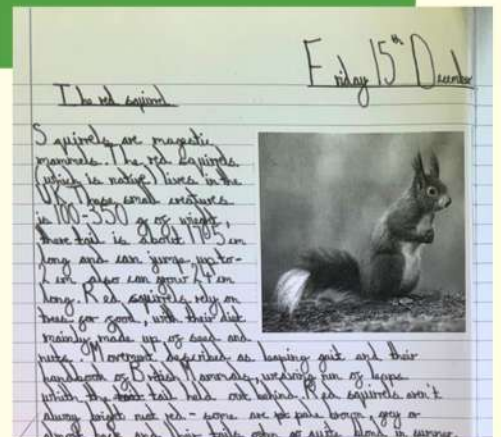 Friday 15th December
The red squirrel
Squirrels are magestic
mammels. The red squirrels
(which is native) lives in the
UK. These small creatures
is 100-350 g of wieght,
there tail is about 1795 cm
long and can jump up to-
2 cm also can grow 24 cm
long. Red squirrels rely on
trees for food, with their diet
mainly made up of seed and
nuts. Movement described as leaping gait and their
handbook of British Mammals, weaving run of leaps
with the tail held out behind. Red squirrels aren't
alway bright rust red - some are pale brown, grey or
almost back and their tails often go quite blond in summer.